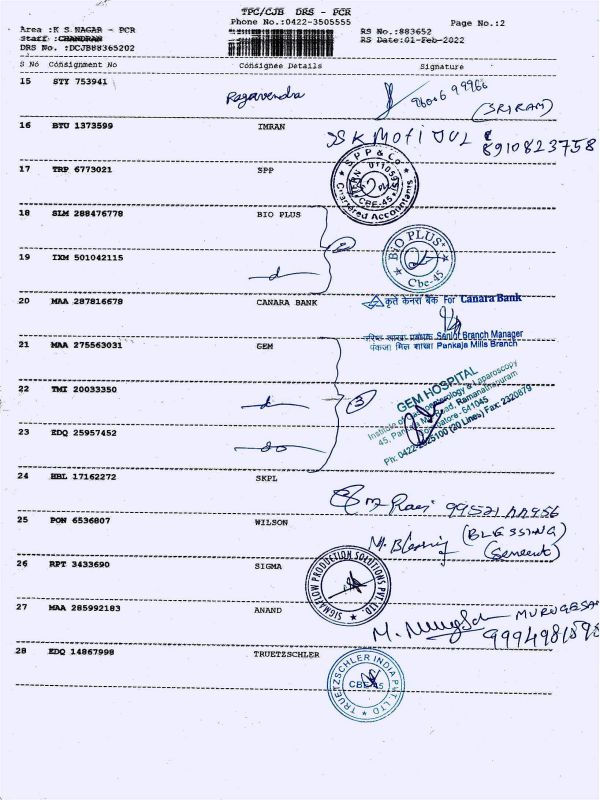 TPC/CJB DRS - PCR
Phone No.:0422-3505555
Page No.:2
Area :K S.NAGAR - PCR
RS No.:883652
Staff :CHANDRAN
RS Date:01-Feb-2022
DRS No. :DCJB88365202
S No Consignment No Consignee Details Signature
15 STY 753941 Ragavendra
(SRIRAM)
16 BTU 1373599 IMRAN
8910823758
17 TRP 6773021 SPP
S P P & Co
Chartered Accountants
CBE-45
18 SLM 288476778 BIO PLUS
2
BIO PLUS
Cbe-45
19 IXM 501042115
20 MAA 287816678 CANARA BANK
कृते केनरा बैंक For Canara Bank
वरिष्ठ शाखा प्रबंधक Senior Branch Manager
पंकजा मिल शाखा Pankaja Mills Branch
21 MAA 275563031 GEM
3
GEM HOSPITAL
Institute of Gastroenterology & Laparoscopy
45, Pankaja Mill Road, Ramanathapuram
Coimbatore - 641045
Fax: 2320879
22 TMI 20033350
23 EDQ 25957452
24 HBL 17162272 SKPL
25 PON 6536807 WILSON
M. Blessing
(BLESSING)
26 RPT 3433690 SIGMA
SIGMAFLOW PRODUCTION SOLUTIONS PVT LTD
27 MAA 285992183 ANAND
MURUGESAN
28 EDQ 14867998 TRUETZSCHLER
TRUETZSCHLER INDIA PVT LTD
CBE-45